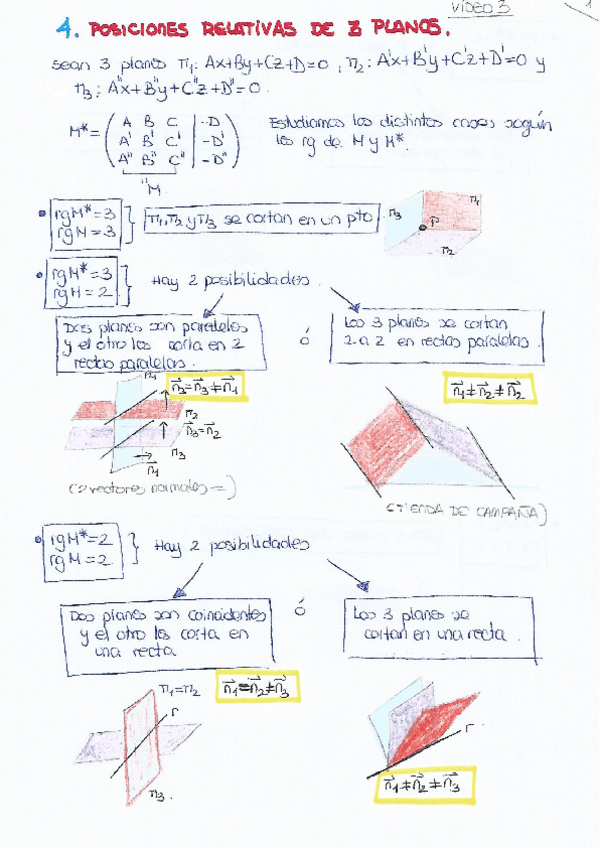 VIDEO 3
1
4. POSICIONES RELATIVAS DE 3 PLANOS.
sean 3 planos π₁: Ax+By+Cz+D=0, π₂: A'x+B'y+C'z+D'=0 y
π₃: A''x+B''y+C''z+D''=0.
M*= ( A B C | -D
A' B' C' | -D'
A'' B'' C'' | -D'' )
"M
Estudiamos los distintos casos según
los rg de M y M*.
• rgM*=3
rgM=3 } π₁, π₂ y π₃ se cortan en un pto
π₃ π₁ P π₂
• rgM*=3
rgM=2 } Hay 2 posibilidades.
Dos planos son paralelos
y el otro los corta en 2
rectas paralelas.
ó
Los 3 planos se cortan
2 a 2 en rectas paralelas
π₁
n₂=n₃≠n₁
π₂
n₃=n₂
π₃
n₁
(vectores normales =)
n₁≠n₂≠n₂
(TIENDA DE CAMPAÑA)
• rgM*=2
rgM=2 } Hay 2 posibilidades
Dos planos son coincidentes
y el otro los corta en
una recta
ó
Los 3 planos se
cortan en una recta.
π₁=π₂
n₁=n₂≠n₃
r
π₃.
r.
n₁≠n₂≠n₃